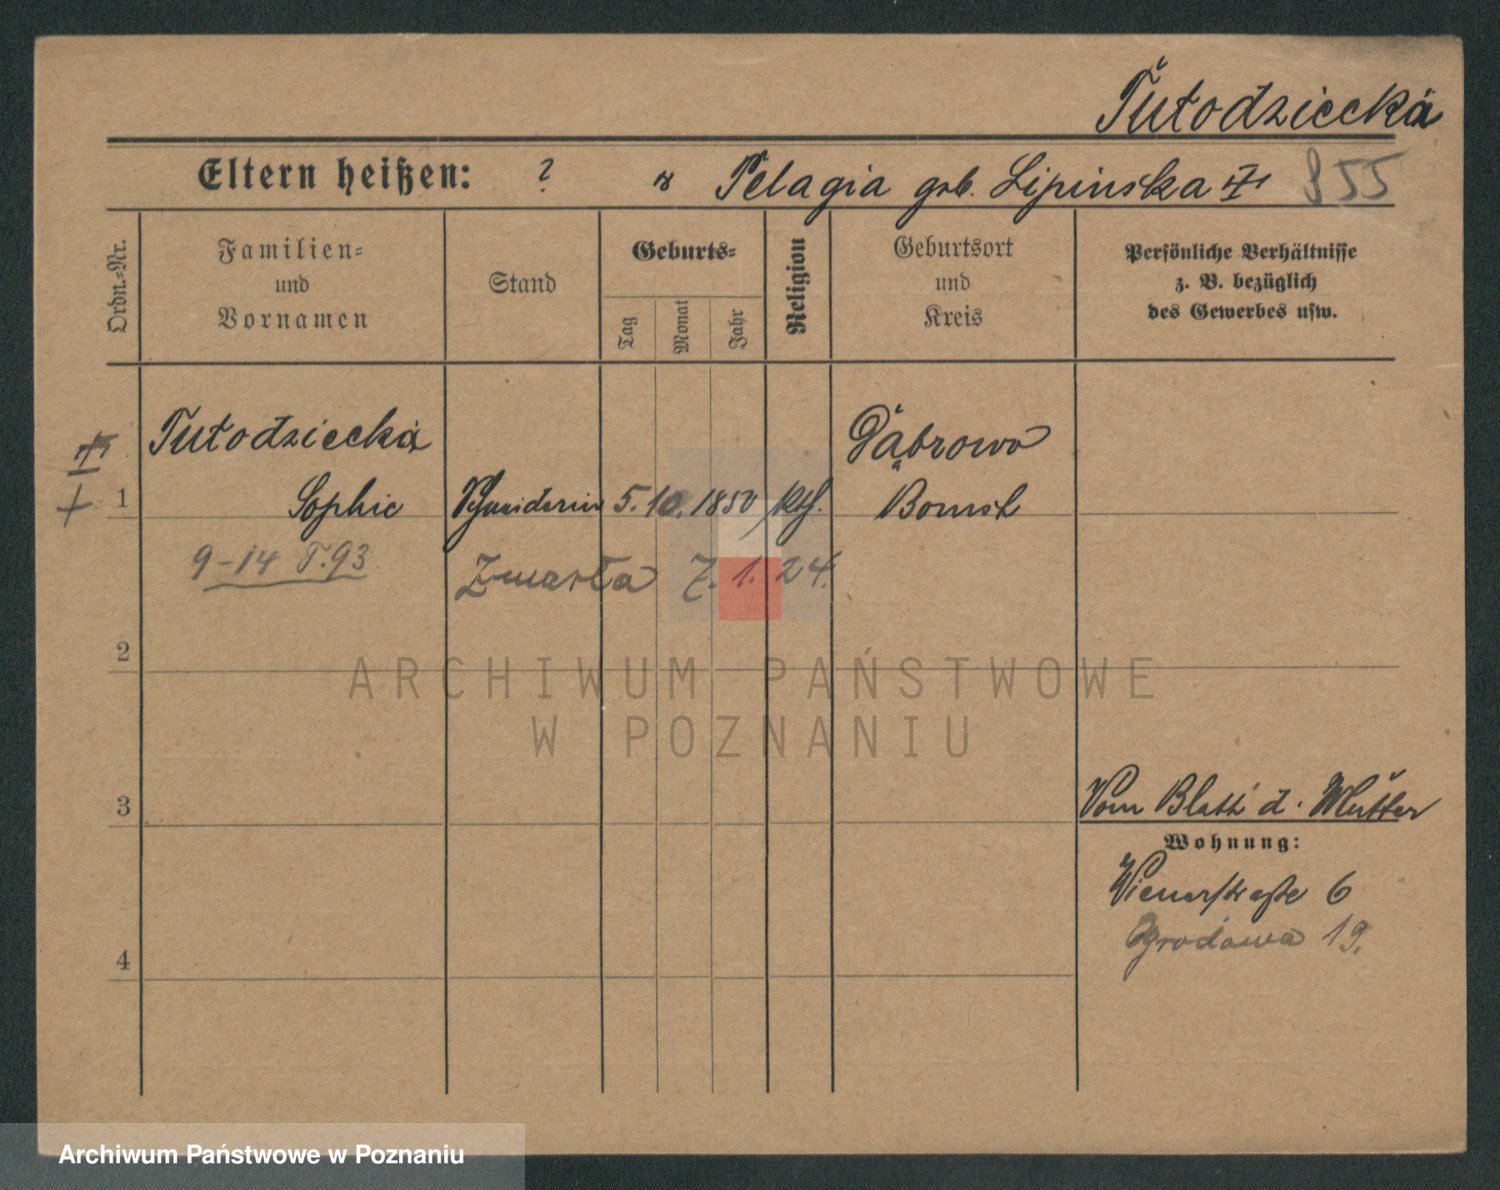 Tułodziecka
Eltern heißen: ? u Pelagia geb. Lipinska
855
Ordn.-Nr.
Familien-
und
Vornamen
Stand
Geburts-
Tag
Monat
Jahr
Religion
Geburtsort
und
Kreis
Persönliche Verhältnisse
z. B. bezüglich
des Gewerbes usw.
Tułodziecka
Dąbrowo
1 Sophie Schneiderin 5. 10. 1850 kth. Bomst
9-14 T.93
Zmarła 7. 1. 24.
2
ARCHIWUM PAŃSTWOWE
W POZNANIU
3
Vom Blatt d. Mutter
Wohnung:
Wienerstraße 6
Ogrodowa 19.
4
Archiwum Państwowe w Poznaniu